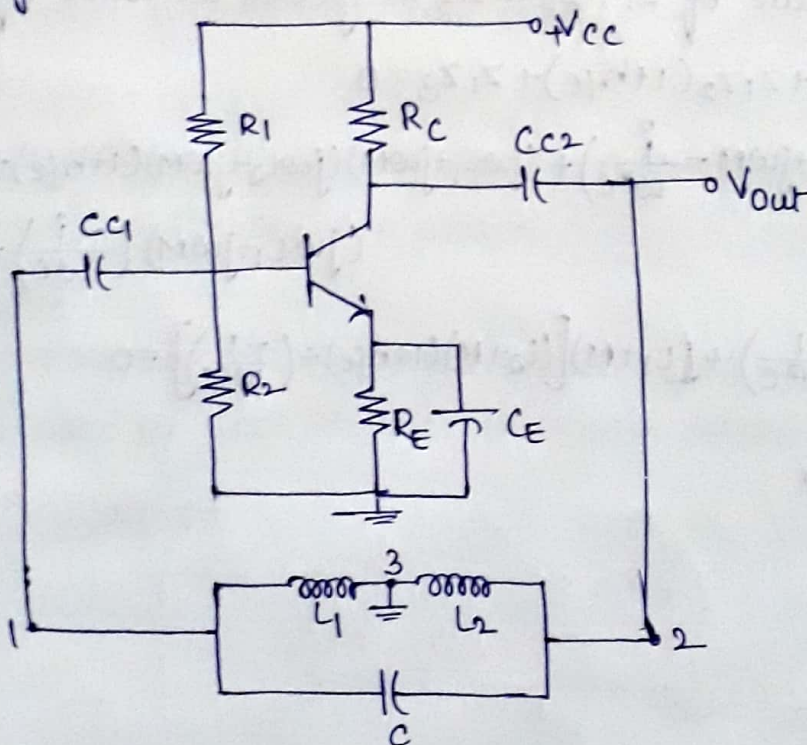 +VCC
R1
RC
CC2
Vout
CC1
R2
RE
CE
3
L1
L2
1
2
C